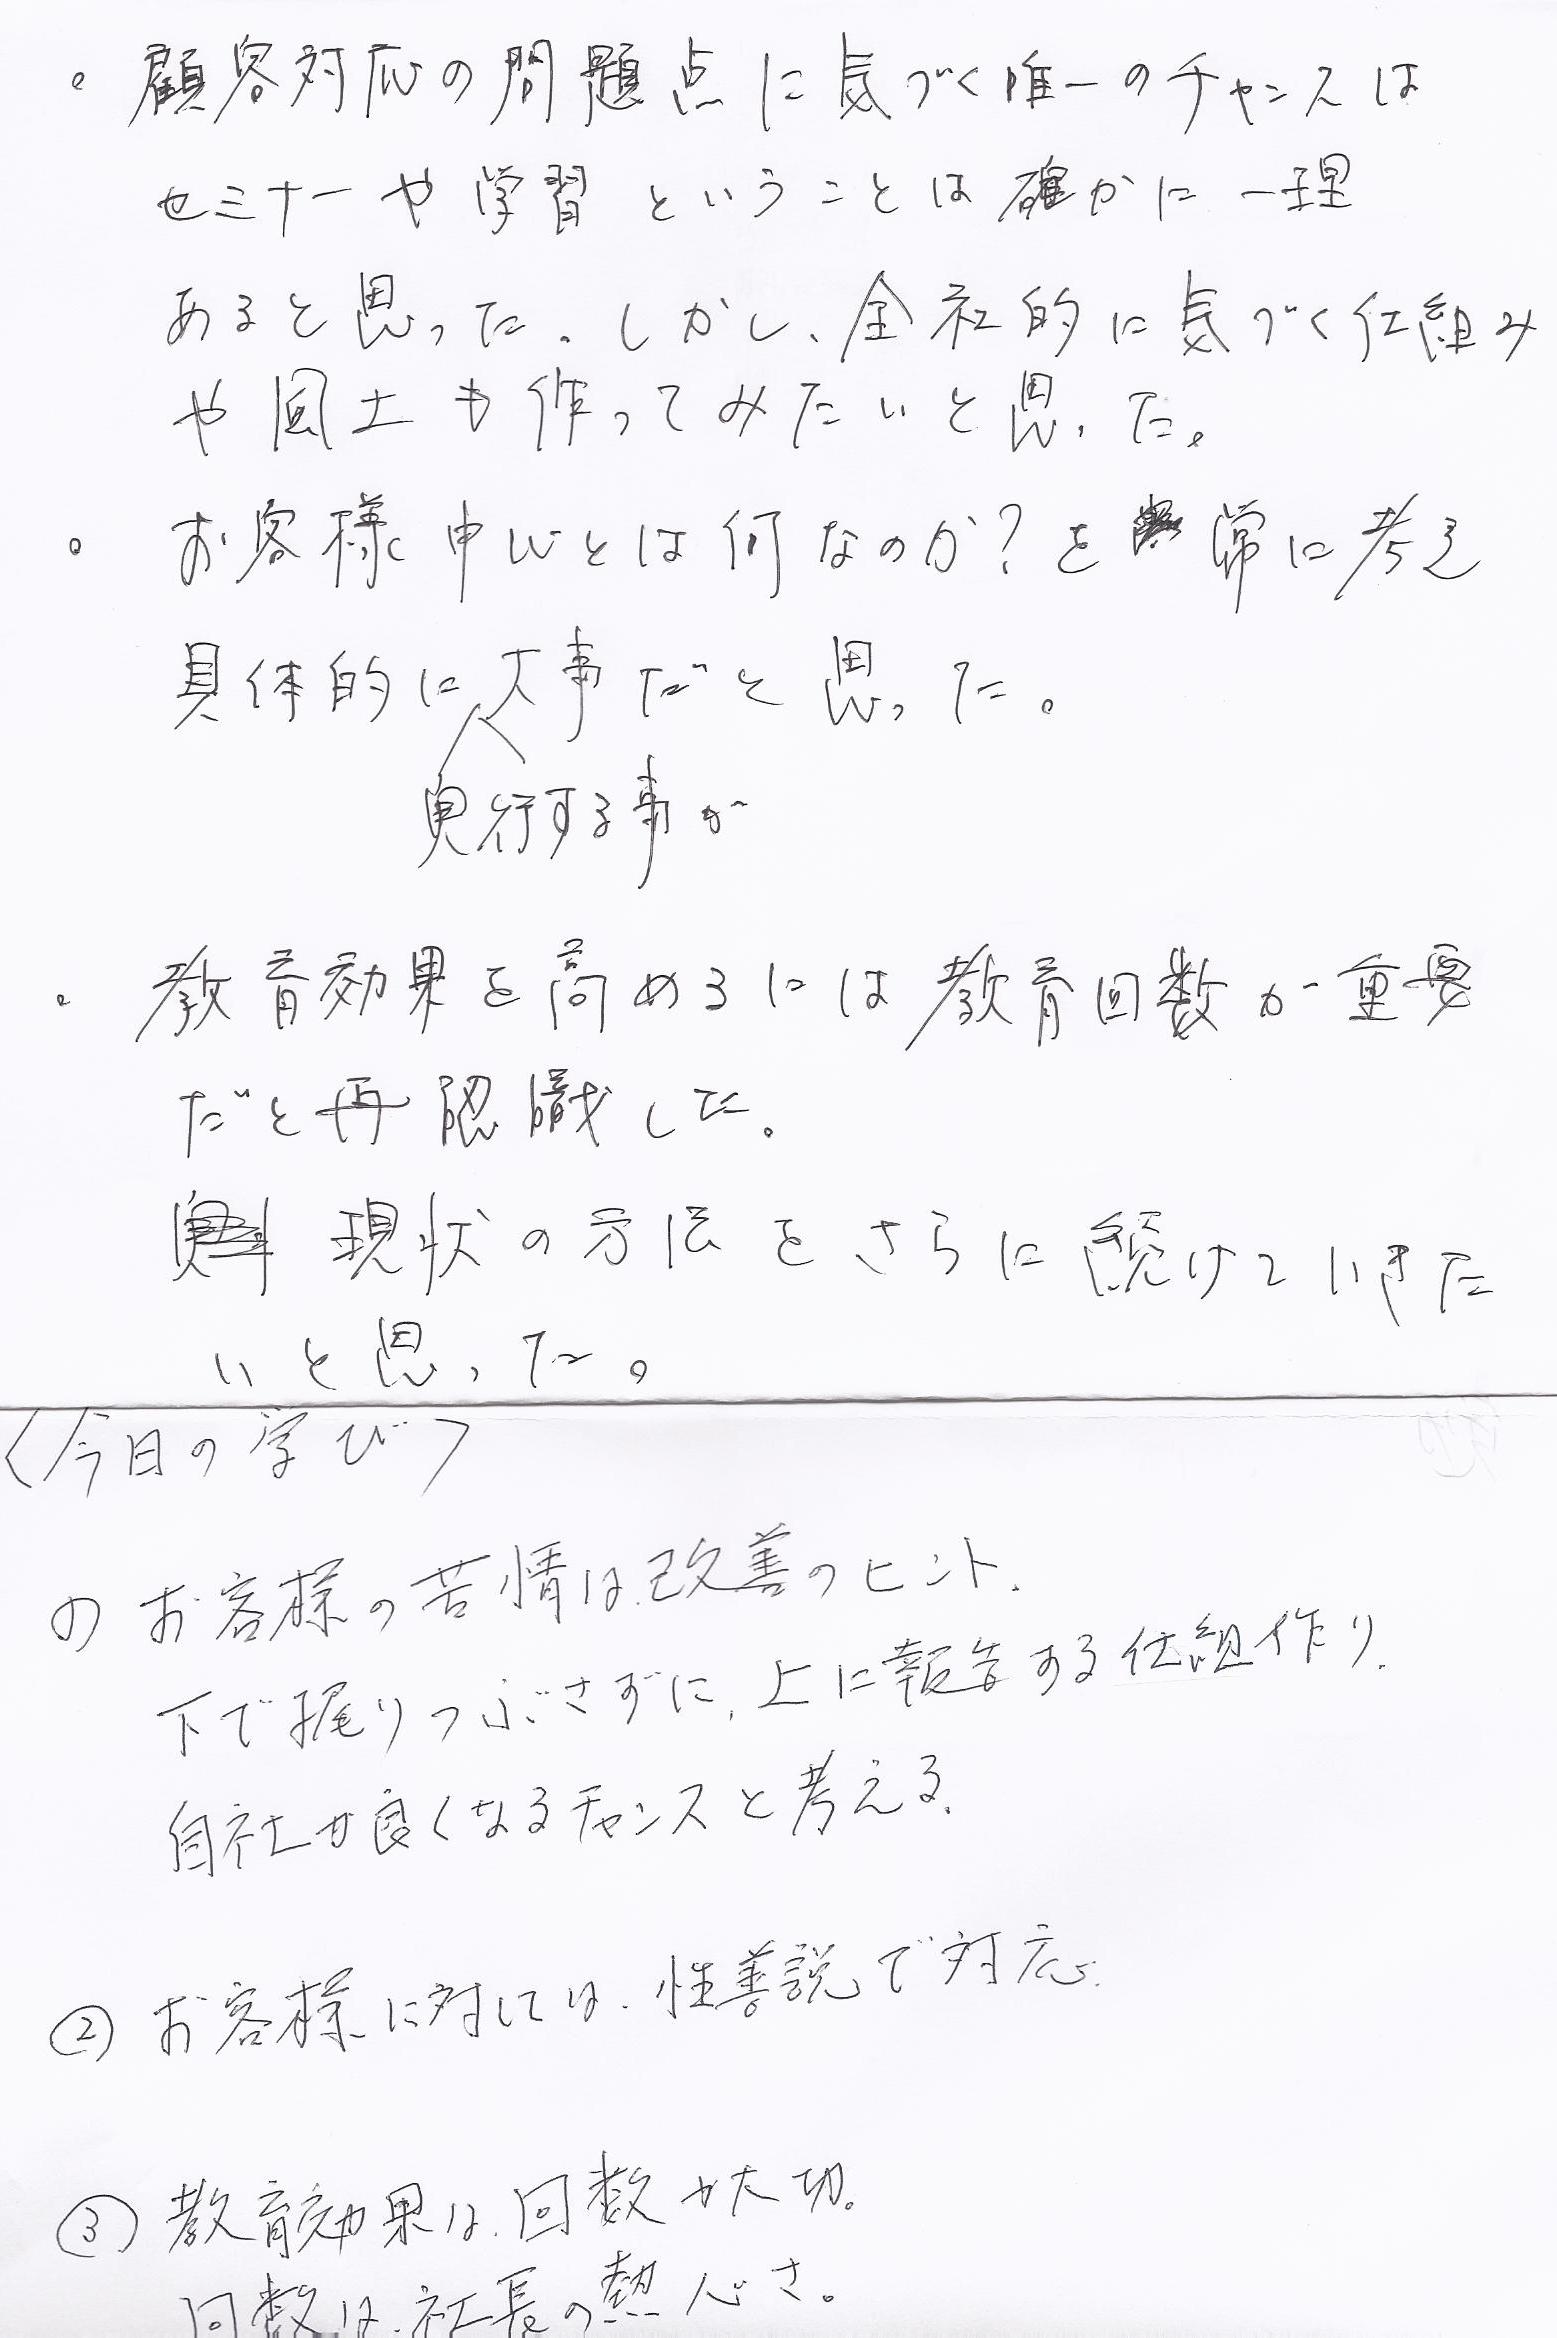 。顧客対応の問題点に気づく唯一のチャンスは
セミナーや学習ということは確かに一理
あると思った。しかし、全社的に気づく仕組み
や風土も作ってみたいと思った。
。お客様中心とは何なのか?を常に考え
具体的に大事だと思った。
実行する事が
。教育効果を高めるには教育回数が重要
だと再認識した。
現状の方法をさらに続けていきた
いと思った。
〈今日の学び〉
① お客様の苦情は、改善のヒント、
下で握りつぶさずに、上に報告する仕組作り、
自社が良くなるチャンスと考える、
② お客様に対しては、性善説で対応、
③ 教育効果は、回数が大切。
回数は、社長の熱心さ。